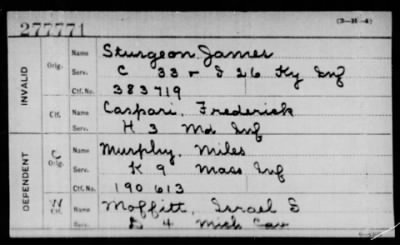 277771
(3-H-4)
INVALID
Orig.
Name Sturgeon, James
Serv. C 33 & I 26 Ky Inf
Ctf. No. 383719
Ctf.
Name Caspari, Frederick
Serv. H 3 Md Inf
DEPENDENT
C
Orig.
Name Murphy, Miles
Serv. K 9 Mass Inf
Ctf. No. 190613
W
Ctf.
Name Moffitt, Israel S
Serv. 4 Mich Cav